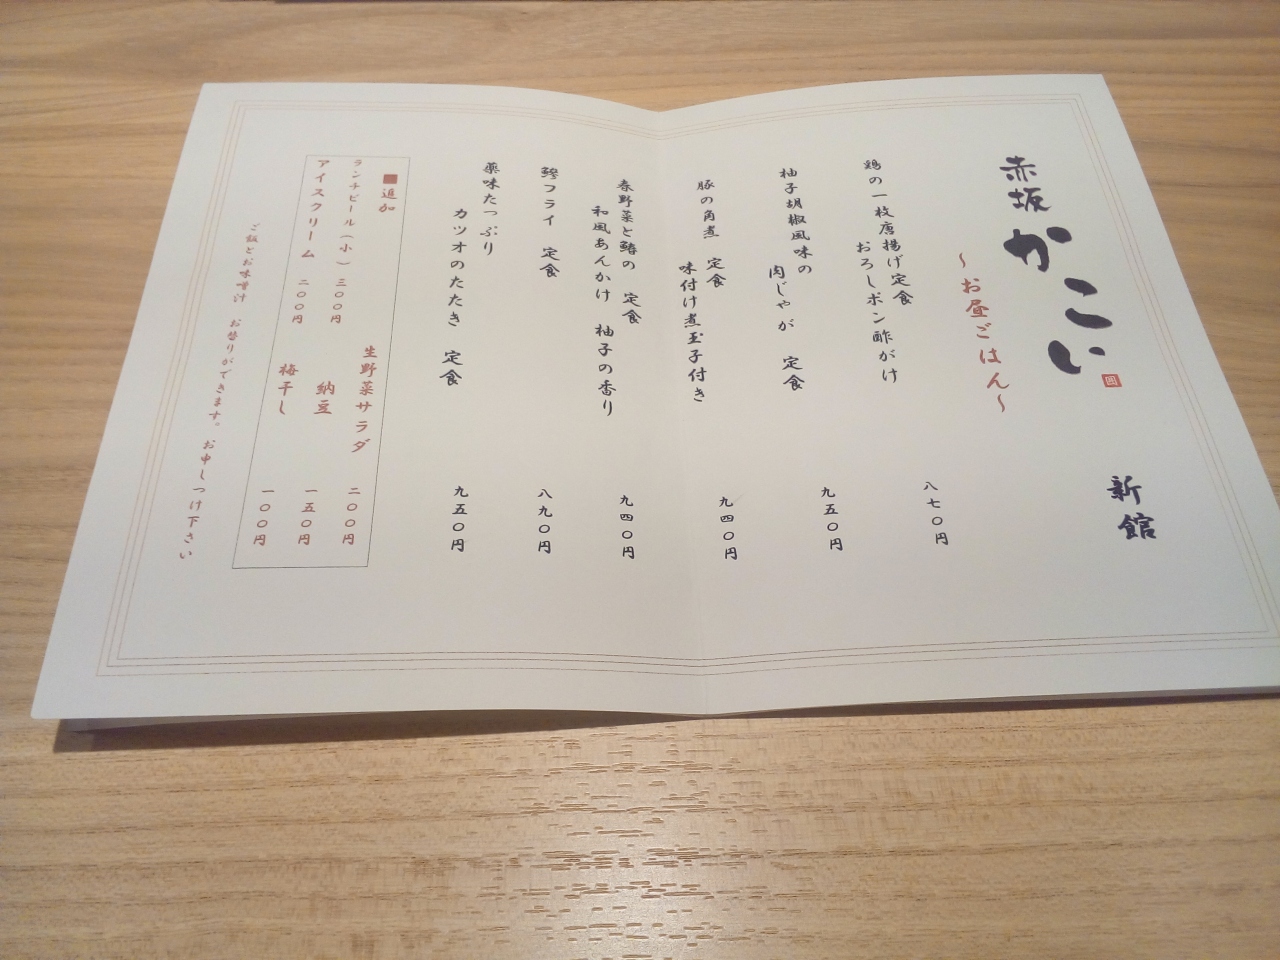 赤坂かこい 新館
囲
～お昼ごはん～
鶏の一枚唐揚げ定食
おろしポン酢がけ
八七〇円
柚子胡椒風味の
肉じゃが 定食
九五〇円
豚の角煮 定食
味付け煮玉子付き
九四〇円
春野菜と鰆の 定食
和風あんかけ 柚子の香り
九四〇円
鯵フライ 定食
八九〇円
薬味たっぷり
カツオのたたき 定食
九五〇円
■追加
生野菜サラダ 二〇〇円
ランチビール(小) 三〇〇円
納豆 一五〇円
アイスクリーム 二〇〇円
梅干し 一〇〇円
ご飯とお味噌汁 お替りができます。お申しつけ下さい